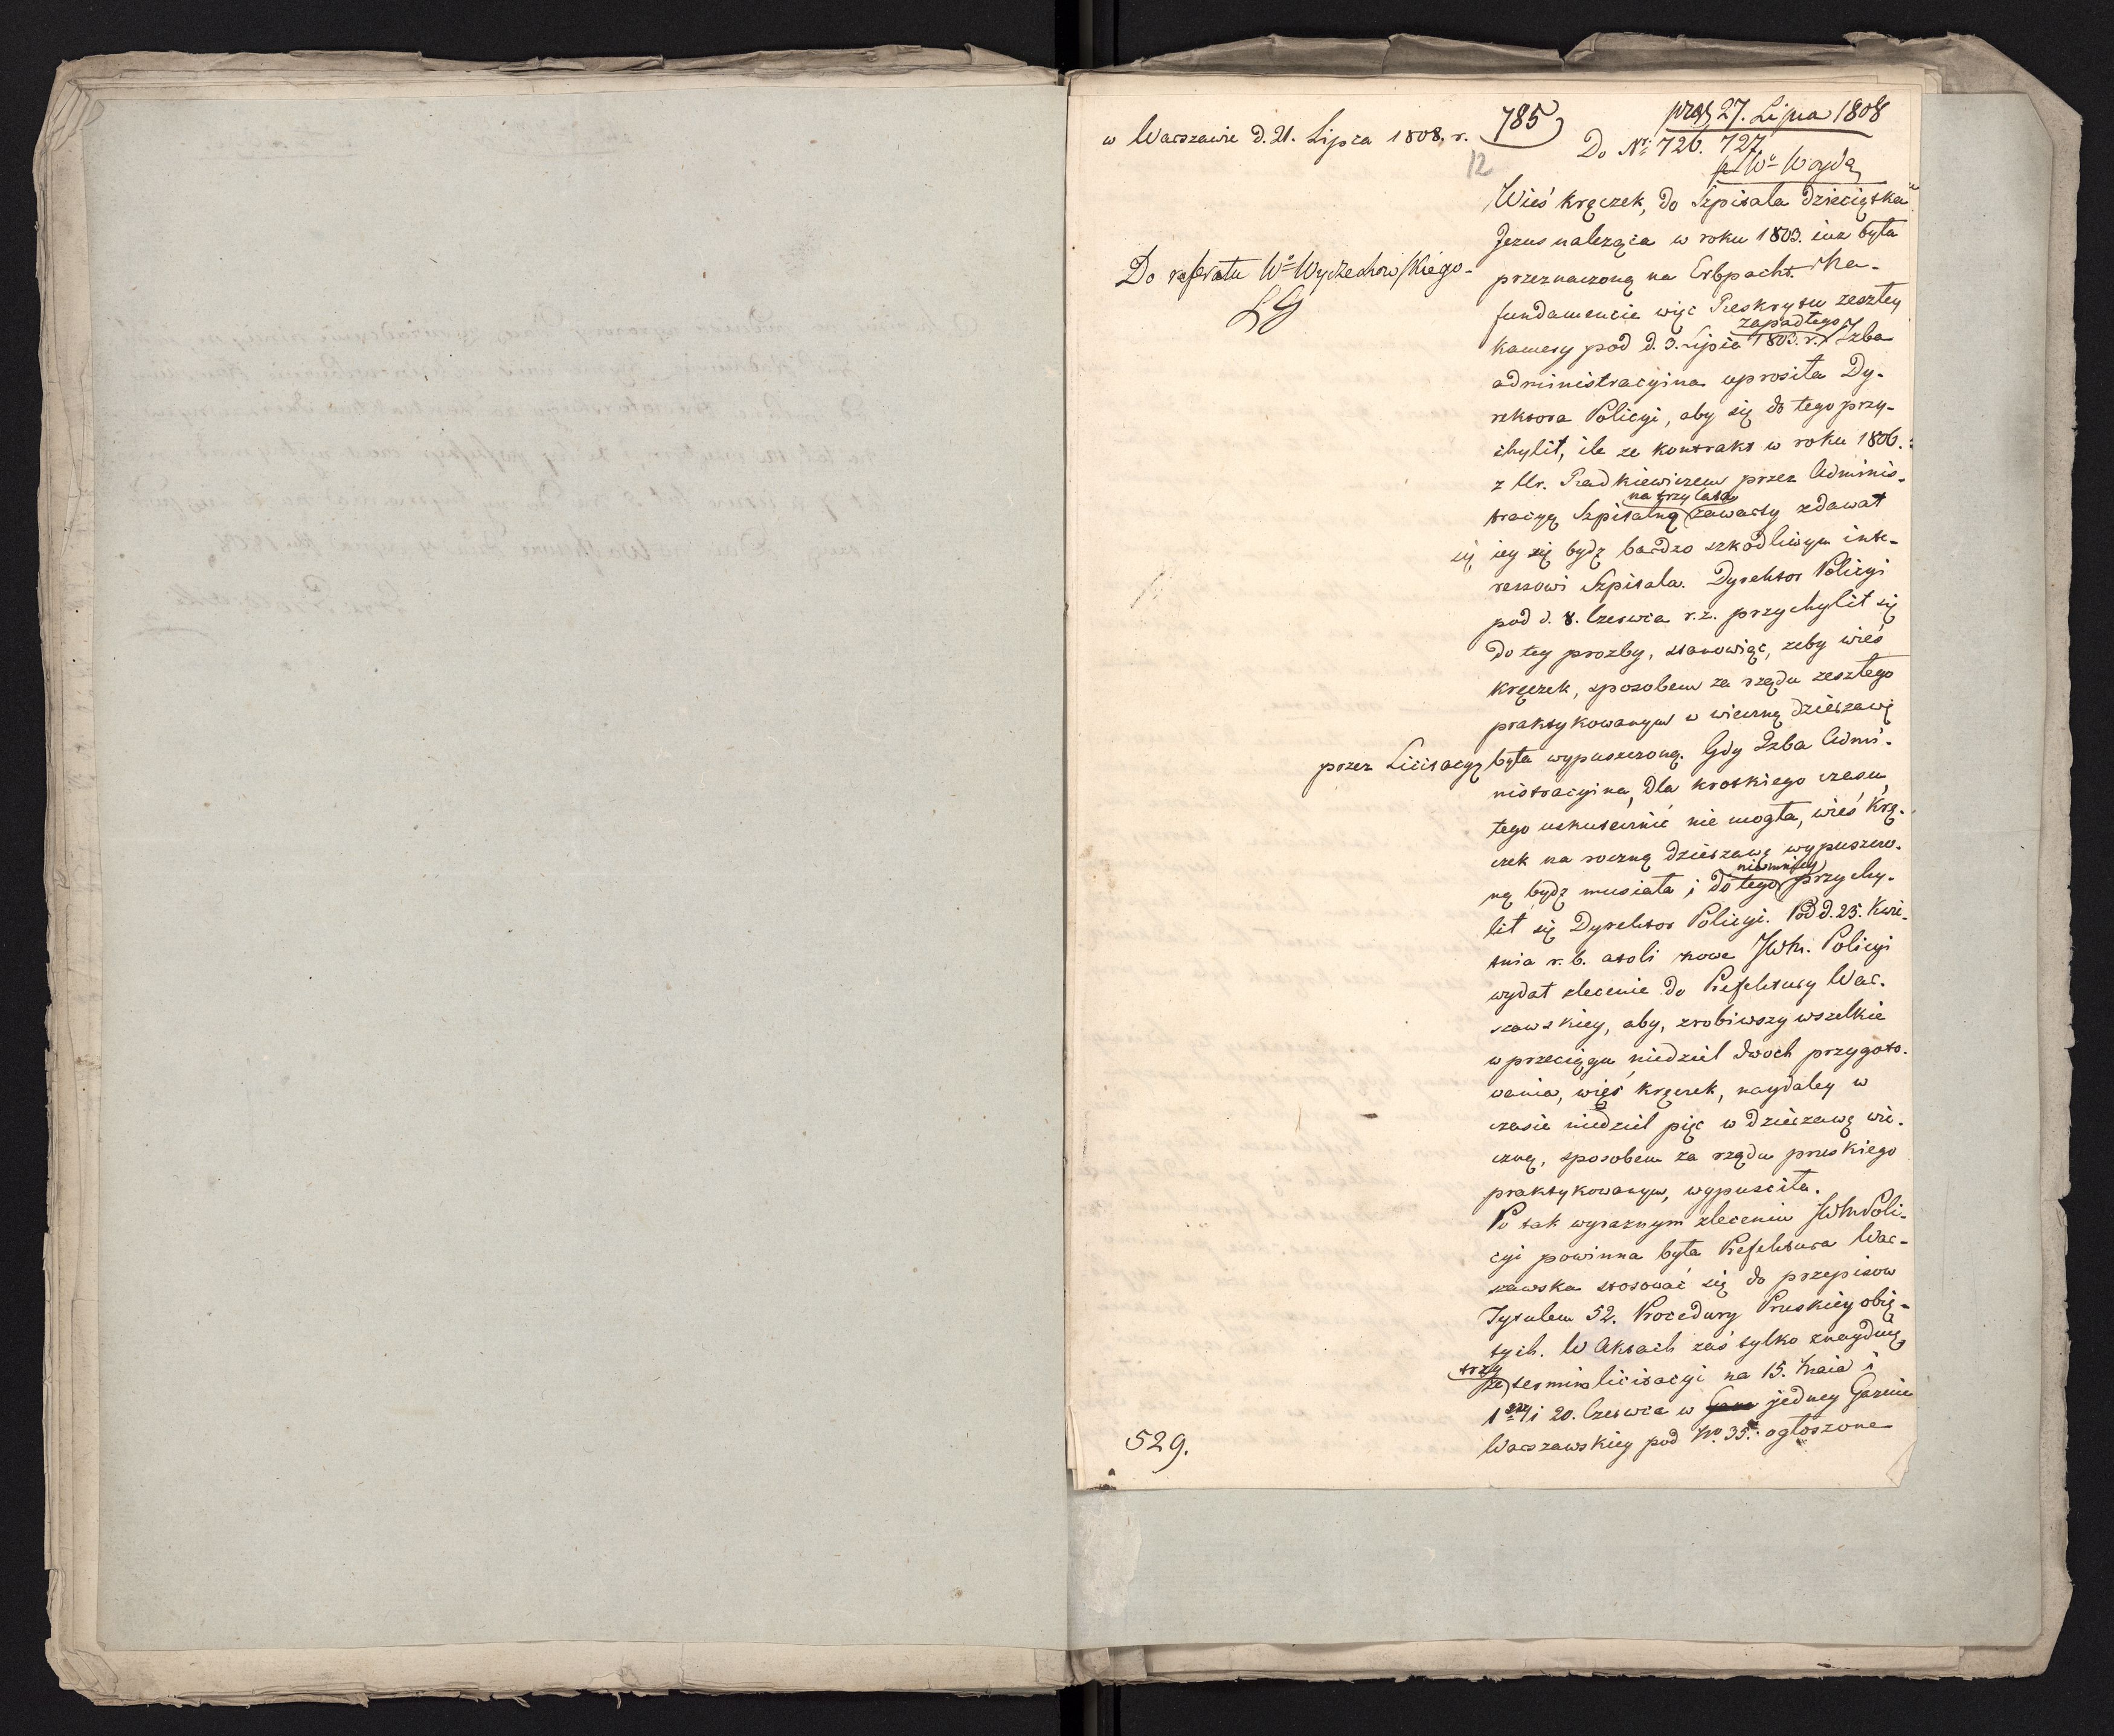 w Warszawie d. 21. Lipca 1808. r.
785
12
27. Lipca 1808
Do Nr. 726. 727
Wo Woyda
Do referatu Wo Wyczechowskiego
LG
Wieś kręczek, do Szpitala dzieciątka
Jezus należąca w roku 1803. iuż była
przeznaczoną na Erbpacht. Na
fundamencie więc Reskryptu zeszłey
kamery pod d. 3. Lipca 1803. r. zapadłego Izba
administracyina uprosiła Dy-
rektora Policyi, aby się do tego przy-
chylił, ile że kontrakt w roku 1806.
z Ur. Radkiewiczem przez Adminis-
tracyą Szpitalną na trzy lata zawarty zdawał
się iey się bydź bardzo szkodliwym inte-
ressowi Szpitala. Dyrektor Policyi
pod d. 8. Czerwca r. z. przychylił się
do tey prozby, stanowiąc, żeby wieś
kręczek, sposobem za rządu zeszłego
praktykowanym w wieczną dzierżawę
przez Licitacyą była wypuszczoną. Gdy Izba Admi-
nistracyina, dla krotkiego czasu,
tego uskutecznić nie mogła, wieś Krę-
czek na roczną dzierżawę wypuszczo-
ną bydź musiała; do tego niemniey przychy-
lił się Dyrektor Policyi. Pod d. 25. Kwie-
tnia r. b. atoli nowe JWM. Policyi
wydał zlecenie do Prefektury War-
szawskiey, aby, zrobiwszy wszelkie
w przeciągu niedziel dwóch przygoto-
wania, wieś kręczek, naydaley w
czasie niedziel pięć w dzierzawę wie-
czną, sposobem za rządu pruskiego
praktykowanym, wypuściła.
Po tak wyraznym zleceniu JWM Poli-
cyi powinna była Prefektura War-
szawska stosować się do przepisow
Tytułem 52. Procedury Pruskiey obię-
tych. W Aktach zaś tylko znayduią
się trzy termina licitacyi na 15. Maia i
1szy i 20. Czerwca w jedney Gazecie
Warszawskiey pod No. 35. ogłoszone
529.